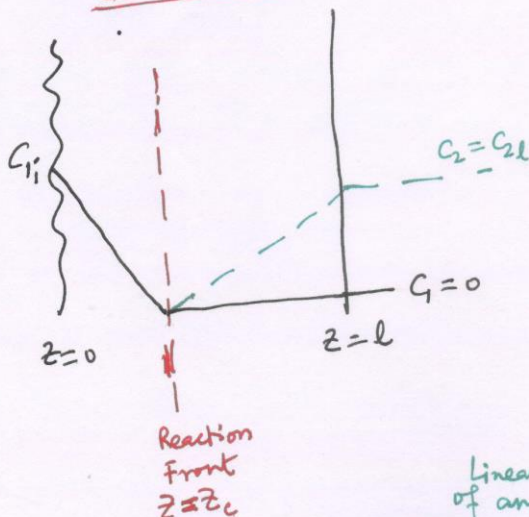 C₁ᵢ
C₂ = C₂ℓ
C₁ = 0
Z = 0
Z = ℓ
Reaction
Front
Z = Z_c
Linea
of an